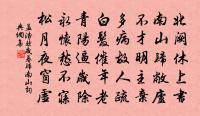 北闕休上書
南山歸敝廬
不才明主棄
多病故人疏
白髮催年老
青陽逼歲除
永懷愁不寐
松月夜窗虛
孟浩然歲暮歸南山詞